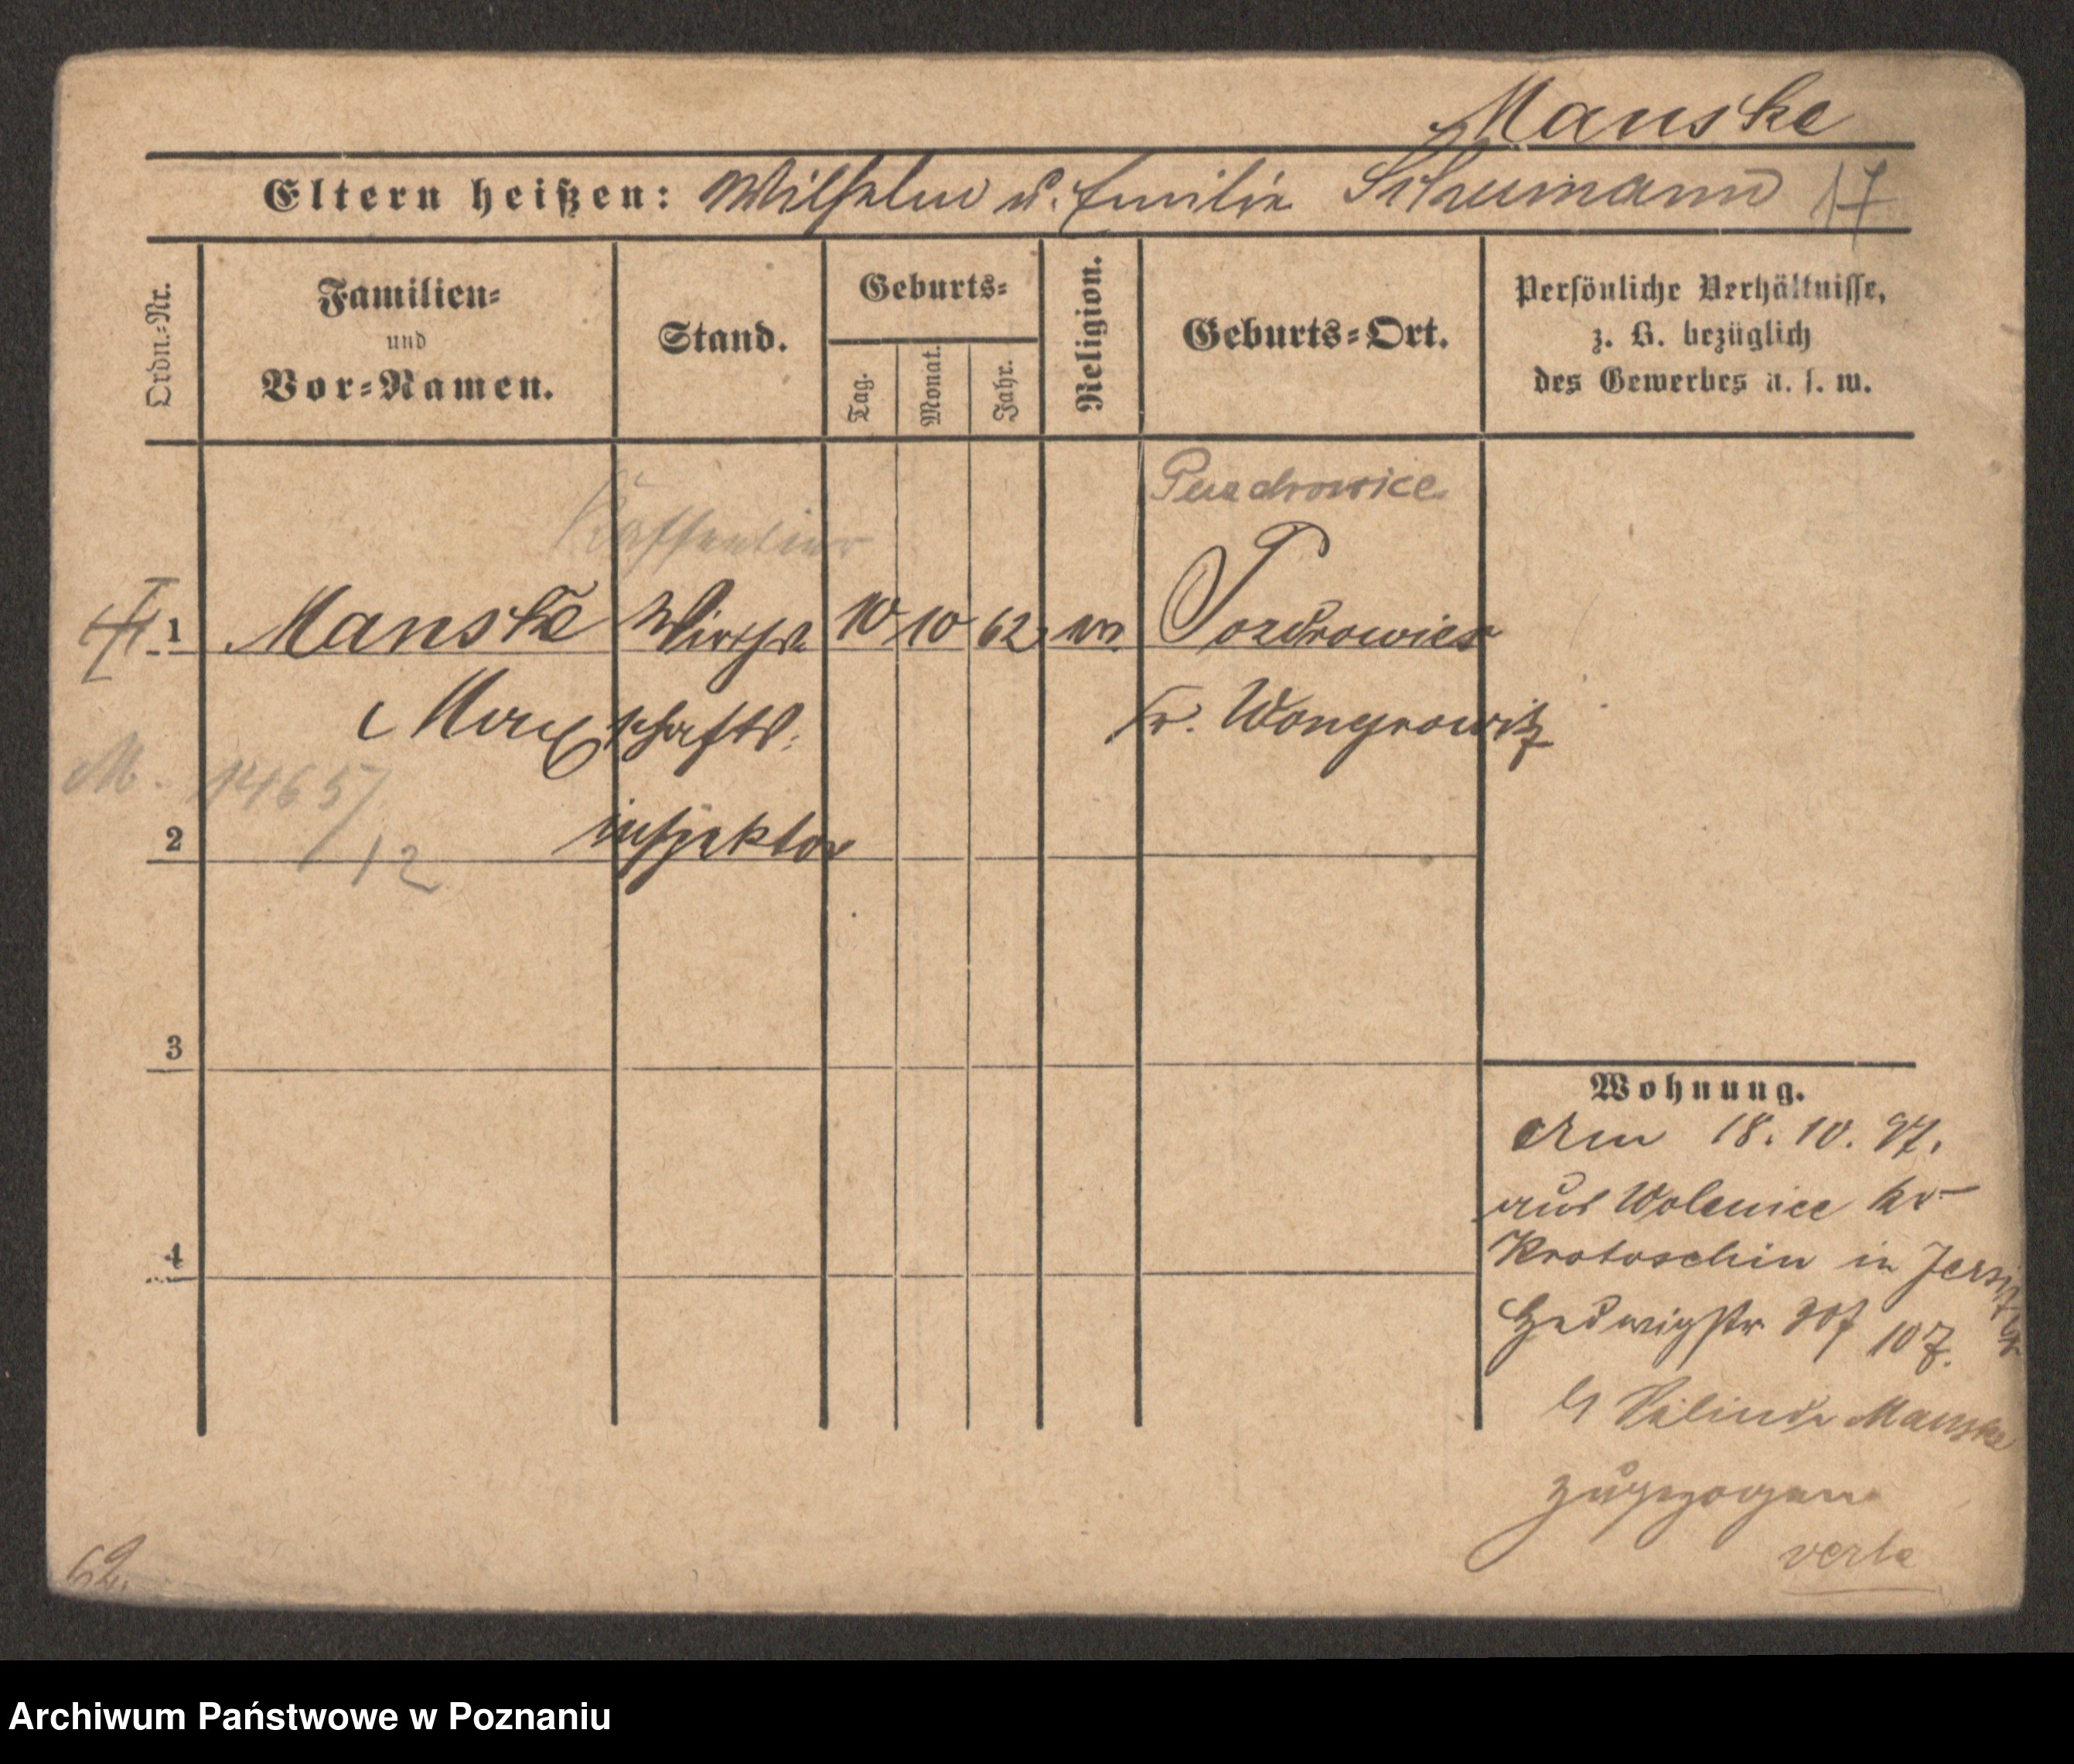 Manske
Eltern heißen: Wilhelm u. Emilie Schumann 17
Ordn.-Nr.
Familien-
und
Vor-Namen.
Stand.
Geburts-
Tag.
Monat.
Jahr.
Religion.
Geburts-Ort.
Persönliche Verhältnisse,
z. B. bezüglich
des Gewerbes u. s. w.
1 Manske Wirth 10 10 62
Pozdrowice
Max schaftl.
Kr. Wongrowitz
M. 1465/12
2 inspektor
3
4
Wohnung.
Am 18. 10. 97.
aus Wolenice Kr
Krotoschin in Jersitz
Hedwigstr 107.
Manske
zugezogen
verte
62.
Archiwum Państwowe w Poznaniu